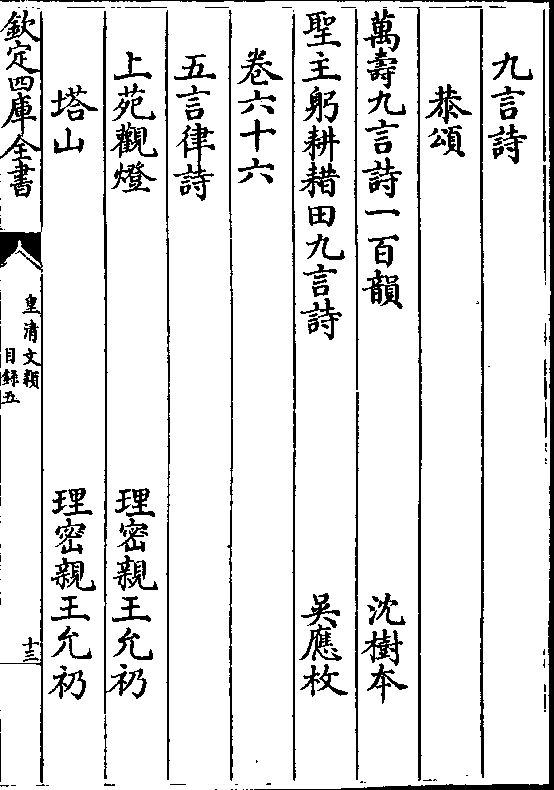 九言詩
恭頌
萬壽九言詩一百韻 沈樹本
聖主躬耕耤田九言詩 吳應枚
卷六十六
五言律詩
上苑觀燈 理密親王允礽
塔山 理密親王允礽
欽定四庫全書 皇清文穎 目錄五 十三